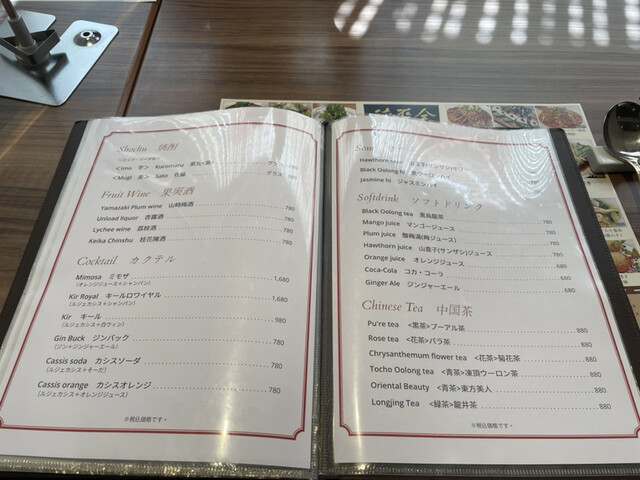 Shochu 焼酎
<Imo 芋> Kuromaru 黒丸<黒> グラス 780
<Mugi 麦> Sato グラス 780
Fruit Wine 果実酒
Yamazaki Plum wine 山崎梅酒 780
Unload liquor 杏露酒 780
Lychee wine 茘枝酒 780
Keika Chinshu 桂花陳酒 780
Cocktail カクテル
Mimosa ミモザ 1,680
(オレンジジュース+シャンパン)
Kir Royal キールロワイヤル 1,680
(ルジェカシス+シャンパン)
Kir キール 980
(ルジェカシス+白ワイン)
Gin Buck ジンバック 780
(ジン+ジンジャーエール)
Cassis soda カシスソーダ 780
(ルジェカシス+そーだ)
Cassis orange カシスオレンジ 780
(ルジェカシス+オレンジジュース)
※税込価格です。
Hawthorn sour 山査子(サンザシ)サワー 780
Black Oolong hi 780
Jasmine hi ジャスミンハイ 780
Softdrink ソフトドリンク
Black Oolong tea 黒烏龍茶 780
Mango juice マンゴージュース 780
Plum juice 酸梅湯(梅ジュース) 780
Hawthorn juice 山査子(サンザシ)ジュース 780
Orange juice オレンジジュース 680
Coca-Cola コカ・コーラ 680
Ginger Ale ジンジャーエール 680
Chinese Tea 中国茶
Pu're tea <黒茶>プーアル茶 880
Rose tea <花茶>バラ茶 880
Chrysanthemum flower tea <花茶>菊花茶 880
Tocho Oolong tea <青茶>凍頂ウーロン茶 880
Oriental Beauty <青茶>東方美人 880
Longjing Tea <緑茶>龍井茶 880
※税込価格です。